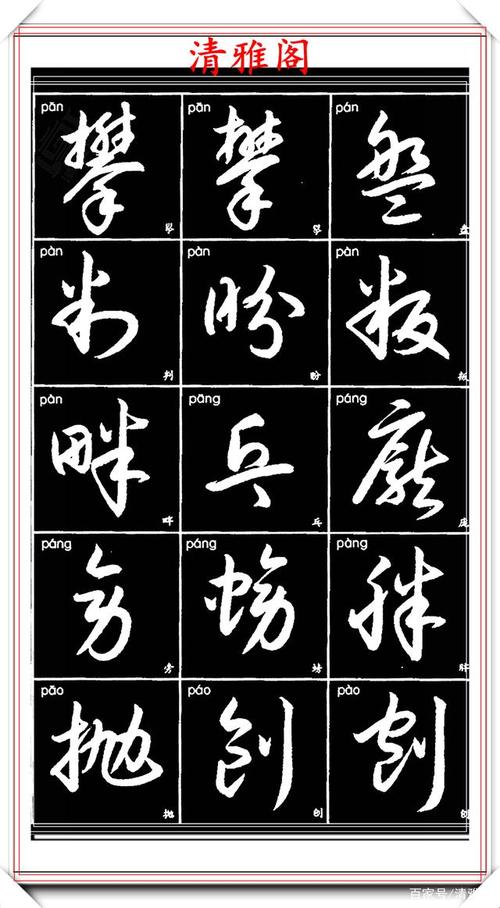 清雅阁
pān pān pán
攀 攀 盤
攀 攀 盘
pàn pàn pàn
判 盼 叛
判 盼 叛
pàn pāng páng
畔 乓 龐
畔 乓 庞
páng páng pàng
旁 螃 胖
旁 螃 胖
pāo páo pào
抛 刨 刨
抛 刨 刨
百家号/清雅